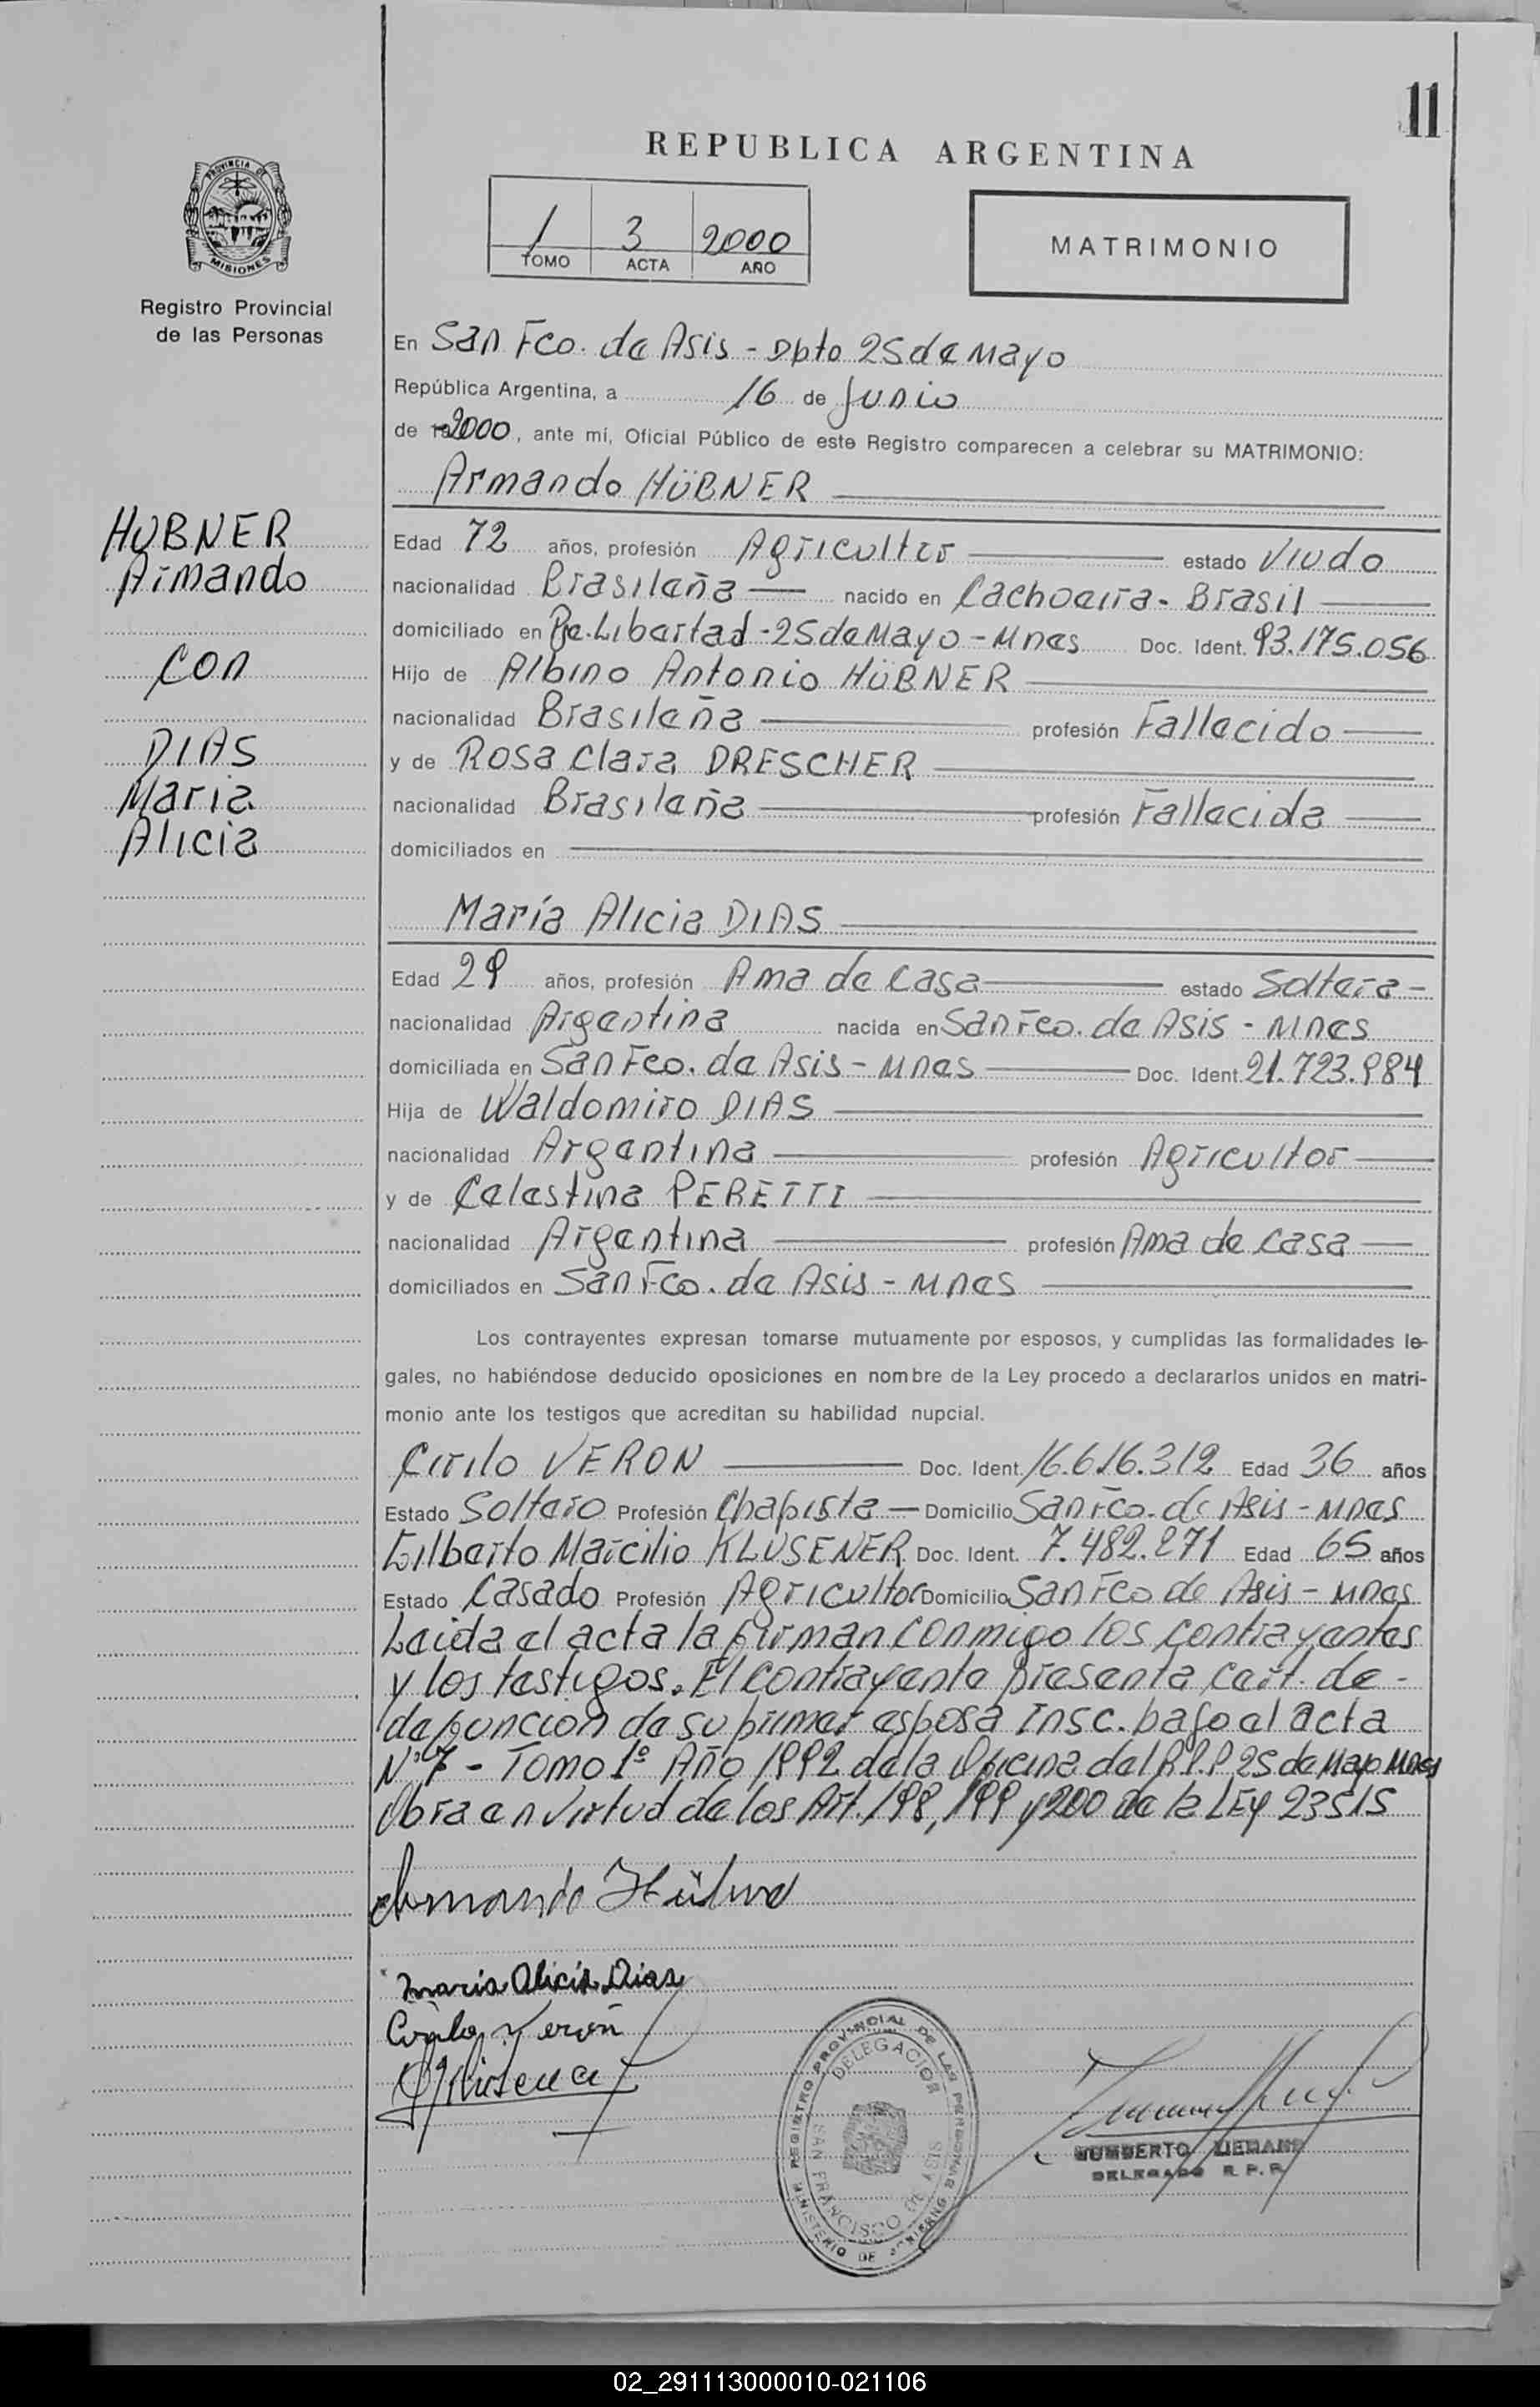 11
REPUBLICA ARGENTINA
PROVINCIA DE MISIONES
1 3 2000
TOMO ACTA AÑO
MATRIMONIO
Registro Provincial
de las Personas
En San Fco. de Asis - Dpto 25 de Mayo
República Argentina, a 16 de Junio
de 2000, ante mí, Oficial Público de este Registro comparecen a celebrar su MATRIMONIO:
Armando HÜBNER
HÜBNER
Armando
con
DIAS
Maria
Alicia
Edad 72 años, profesión Agricultor estado Viudo
nacionalidad Brasileña nacido en Cachoeira - Brasil
domiciliado en Pje. Libertad - 25 de Mayo - Mnes Doc. Ident. 93.175.056
Hijo de Albino Antonio HÜBNER
nacionalidad Brasileña profesión Fallecido
y de Rosa Clara DRESCHER
nacionalidad Brasileña profesión Fallecida
domiciliados en
María Alicia DIAS
Edad 29 años, profesión Ama de casa estado Soltera -
nacionalidad Argentina nacida en San Fco. de Asis - Mnes
domiciliada en San Fco. de Asis - Mnes Doc. Ident. 21.723.984
Hija de Waldomiro DIAS
nacionalidad Argentina profesión Agricultor
y de Celestina PERETTI
nacionalidad Argentina profesión Ama de casa
domiciliados en San Fco. de Asis - Mnes
Los contrayentes expresan tomarse mutuamente por esposos, y cumplidas las formalidades le-
gales, no habiéndose deducido oposiciones en nombre de la Ley procedo a declararlos unidos en matri-
monio ante los testigos que acreditan su habilidad nupcial.
Cirilo VERON Doc. Ident. 16.616.312 Edad 36 años
Estado Soltero Profesión Chapista Domicilio San Fco. de Asis - Mnes
Gilberto Marcilio KLUSENER Doc. Ident. 7.482.271 Edad 65 años
Estado Casado Profesión Agricultor Domicilio San Fco de Asis - Mnes
Leida el acta la firman conmigo los contrayentes
y los testigos. El contrayente presenta cert. de -
defuncion de su primer esposa Insc. bajo el acta
Nº 7 - Tomo 1º Año 1992 de la Oficina del R.P.P 25 de Mayo Mnes
Obra en virtud de los Art. 198, 199 y 200 de la LEy 23515
Armando Hübner
Maria Alicia Dias
Cirilo Veron
REGISTRO PROVINCIAL DE LAS PERSONAS
MINISTERIO DE GOBIERNO
DELEGACION
SAN FRANCISCO DE ASIS
HUMBERTO
DELEGADO R. P. P.
02_291113000010-021106